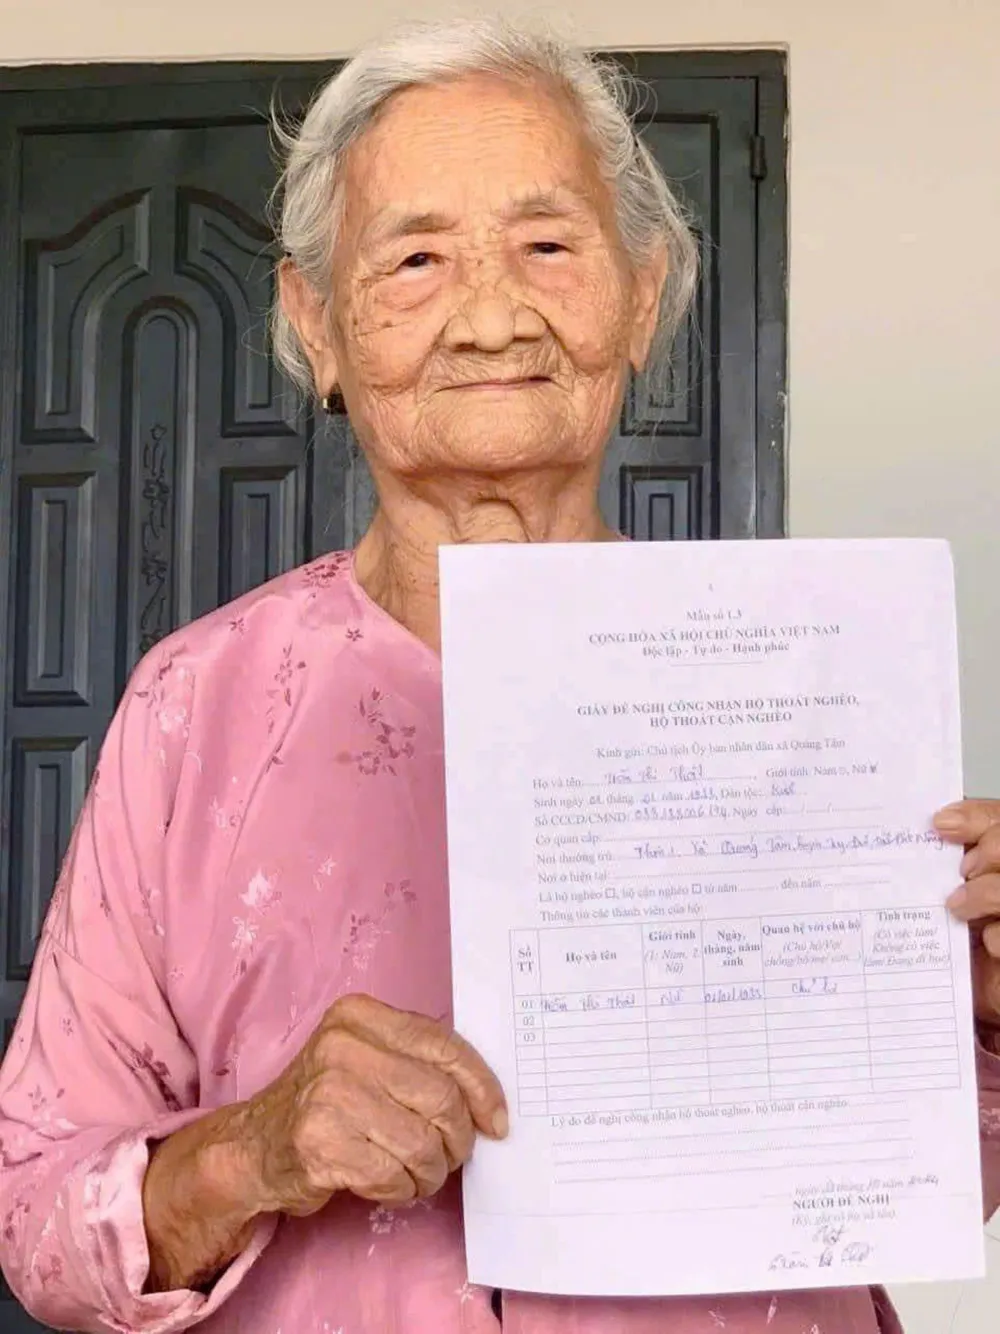 Mẫu số 1.3
CỘNG HÒA XÃ HỘI CHỦ NGHĨA VIỆT NAM
Độc lập - Tự do - Hạnh phúc
GIẤY ĐỀ NGHỊ CÔNG NHẬN HỘ THOÁT NGHÈO,
HỘ THOÁT CẬN NGHÈO
Kính gửi: Chủ tịch Ủy ban nhân dân xã Quảng Tâm
Họ và tên: Thị Thật, Giới tính: Nam □, Nữ
Sinh ngày 01 tháng 01 năm 1933, Dân tộc: Kinh
Số CCCD/CMND: Ngày cấp: / /
Cơ quan cấp:
Nơi thường trú: Thôn 1, Xã Quảng Tâm, huyện Tuy Đức, Đắk Nông
Nơi ở hiện tại:
Là hộ nghèo □, hộ cận nghèo □ từ năm ........... đến năm ...........
Thông tin các thành viên của hộ:
Số TT Họ và tên Giới tính (1: Nam, 2 Nữ) Ngày, tháng, năm sinh Quan hệ với chủ hộ (Chủ hộ/Vợ/ chồng/bố/mẹ/ con...) Tình trạng (Có việc làm/ Không có việc làm/ Đang đi học)
01 Thị Thật Nữ 01/01/1933 Chủ hộ
02
03
Lý do đề nghị công nhận hộ thoát nghèo, hộ thoát cận nghèo:
ngày tháng 10 năm 2024
NGƯỜI ĐỀ NGHỊ
(Ký, ghi rõ họ và tên)
Thật